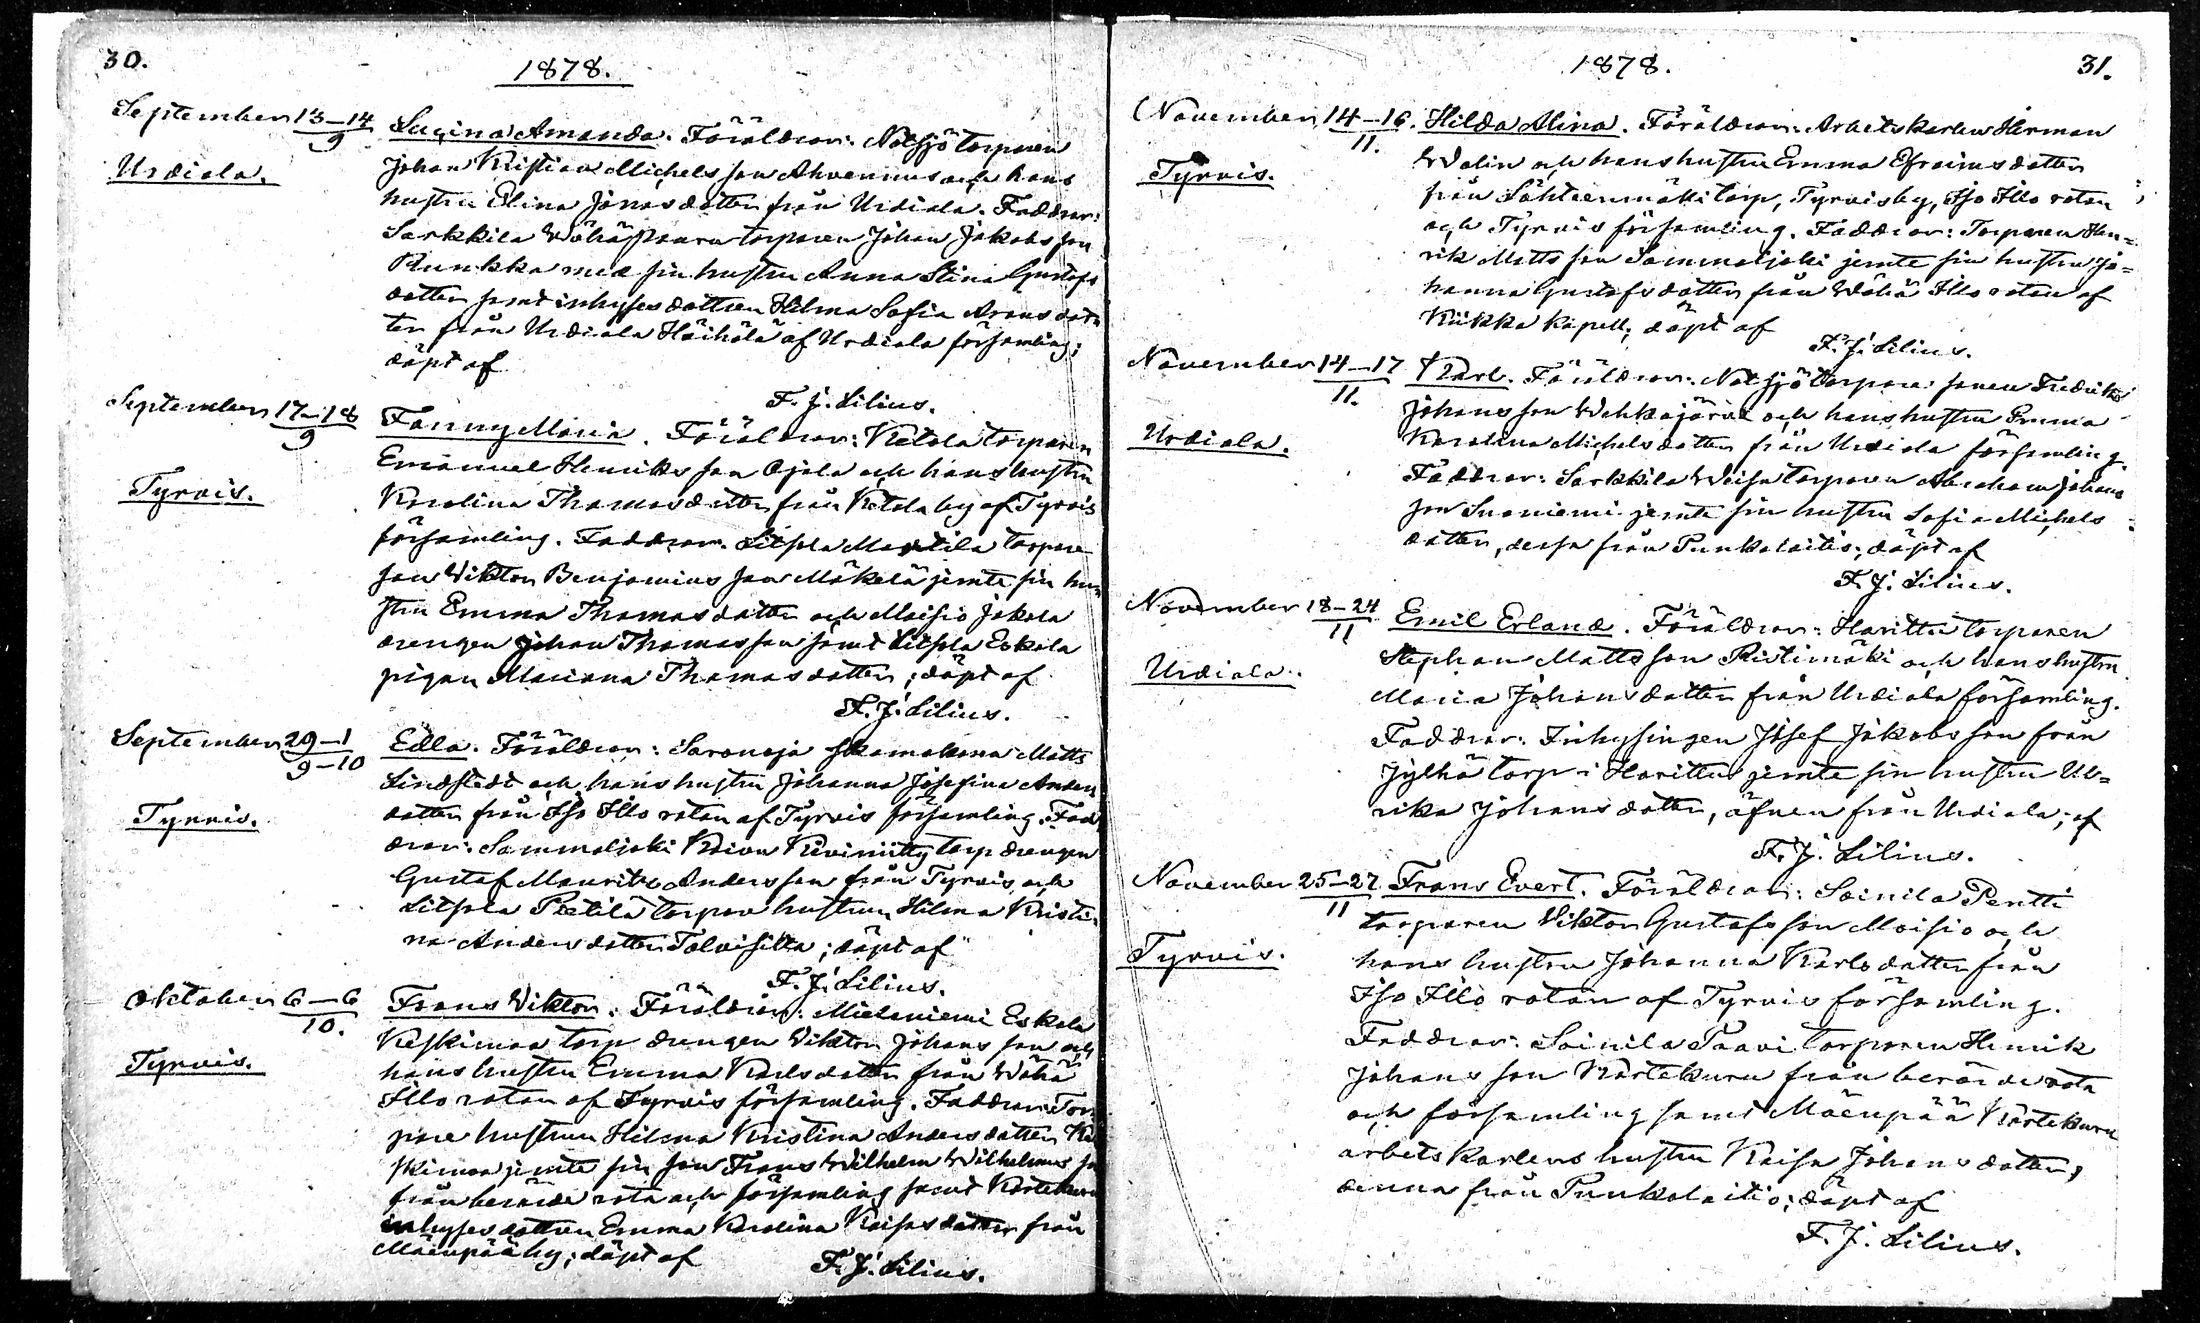 30.
1878.
September 13–14/9
Urdiala.
Lucina Amanda. Föräldrar: Notsjö torparen
Johan Kristian Michelsson Ahvenus och hans
hustru Elina Jonasdotter från Urdiala. Faddrar:
Sarkkila Wähäpaavu torparen Johan Jakobsson
Runkka med sin hustru Anna Stina Gustafs
dotter samt inhysesdottren Hilma Sofia Aronsdot
ter från Urdiala Häihälä af Urdiala församling;
döpt af
F. J. Lilius.
September 17–18/9
Tyrvis.
Fanny Maria. Föräldrar: Ketola torparen
Emanuel Henriksson Ojala och hans hustru
Karolina Thomasdotter från Ketola by af Tyrvis
församling. Faddrar: Liitsola Marttila torpare
son Viktor Benjaminsson Mäkelä jemte sin hu=
stru Emma Thomasdotter och Moisio Jakola
drengen Johan Thomasson samt Liitsola Eskola
pigan Mariana Thomasdotter; döpt af
F. J. Lilius.
September 29–1/9–10
Tyrvis.
Edla. Föräldrar: Saronoja skomakaren Matts
Lindstedt och hans hustru Johanna Josefina Anders
dotter från Iso Illo rotan af Tyrvis församling. Fad
drar: Sammaljoki Krivu Kiviniitty torp drengen
Gustaf Mauritz Andersson från Tyrvis och
Liitsola Pietilä torpare hustrun Hilma Kristi=
na Andersdotter Talvisilta; döpt af
F. J. Lilius.
Oktober 6–6/10.
Tyrvis.
Frans Viktor. Föräldrar: Mieleniemi Eskola
Keskimaa torp drengen Viktor Johansson och
hans hustru Emma Karlsdotter från Wähä
Illo rotan af Tyrvis församling. Faddrar: Tor
pare hustrun Hilma Kristina Andersdotter Ke
skimaa jemte sin son Frans Wilhelm Wilhelmsso
från berörde rota och församling samt Kortekuru
inhysesdottren Emma Karolina Kaisasdotter från
Mäenpää by; döpt af
F. J. Lilius.
1878.
31.
November 14–16/11.
Tyrvis.
Hilda Alina. Föräldrar: Arbetskarlen Herman
Walin och hans hustru Emma Efraimsdotter
från Lähteenmäki torp, Tyrvisby, Iso Illo rotan
och Tyrvis församling. Faddrar: Torparen Hen=
rik Mattsson Sammaljoki jemte sin hustru Jo=
hanna Gustafsdotter från Wähä Illo rotan af
Kiikka kapell; döpt af
F. J. Lilius.
November 14–17/11.
Urdiala.
Karl. Föräldrar: Notsjö torpare sonen Fredrik
Johansson Wehkajärvi och hans hustru Emma
Karolina Michelsdotter från Urdiala församling.
Faddrar: Sarkkila Weisa torparen Abraham Johans
son Suoniemi jemte sin hustru Sofia Michels
dotter, dessa från Punkolaitio; döpt af
F. J. Lilius.
November 18–24/11
Urdiala.
Emil Erland. Föräldrar: Haritto torparen
Stephan Mattsson Ristimäki och hans hustru
Maria Johansdotter från Urdiala församling.
Faddrar: Inhysingen Josef Jakobsson från
Jylhä torp i Haritto jemte sin hustru Ul=
rika Johansdotter, äfven från Urdiala; af
F. J. Lilius.
November 25–27/11
Tyrvis.
Frans Evert. Föräldrar: Soinila Pentti
torparen Viktor Gustafsson Moisio och
hans hustru Johanna Karlsdotter från
Iso Illo rotan af Tyrvis församling.
Faddrar: Soinila Paavi torparen Henrik
Johansson Kortekuru från berörde rota
och församling samt Mäenpää Kortekuru
arbetskarlens hustru Kaisa Johansdotter,
denna från Punkolaitio; döpt af
F. J. Lilius.